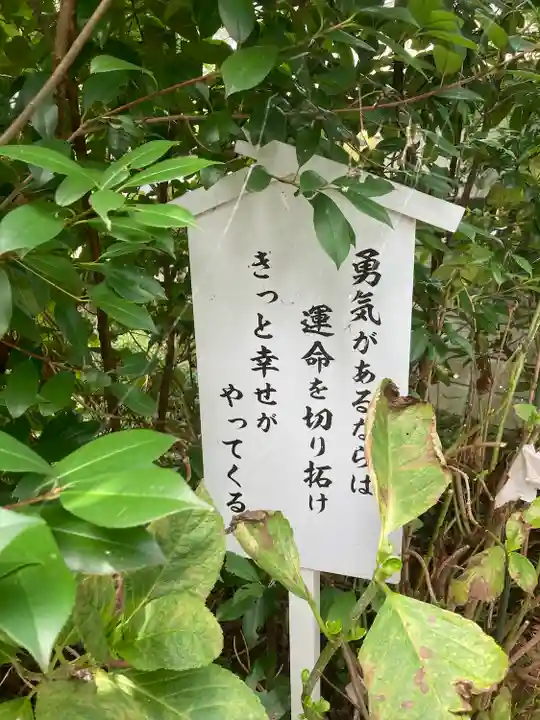 勇気があるならば
運命を切り拓け
きっと幸せが
やってくる